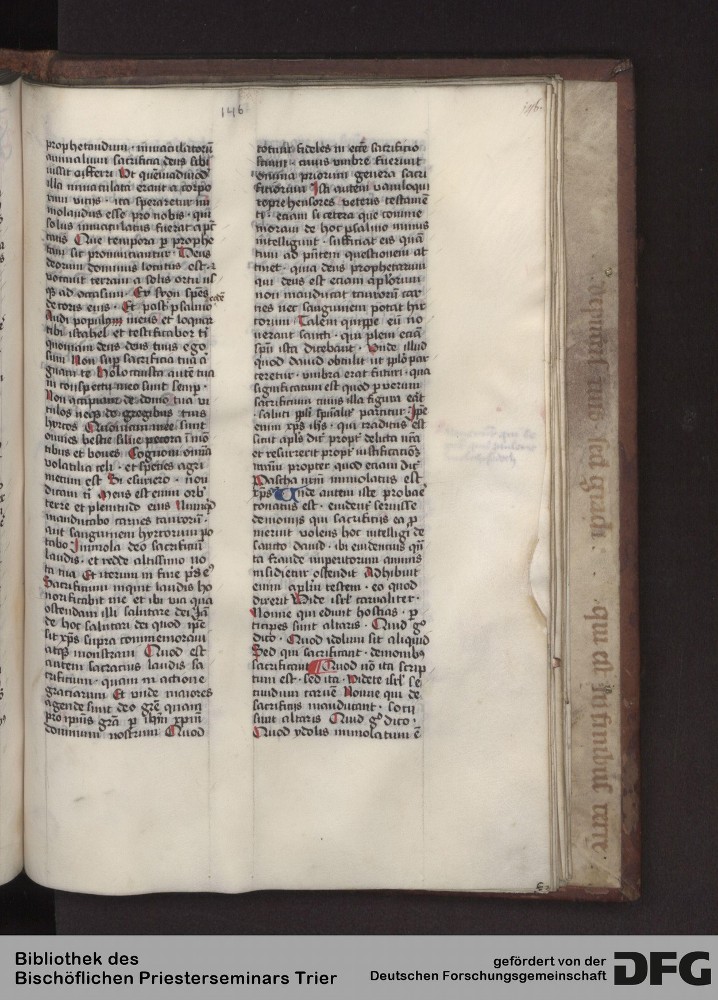 146
146.
prophetandum · inmaculatorū
animalium sacrificia deus sibi
iussit offerri Ut quēadmodū
illa inmaculata erant a corpo
rum vitijs · ita speraretur im
molandus esse pro nobis · qui
solus inmaculatus fuerat a pc̄
catis Que tempora p prophe
tam sic pronunciantur · Deus
deorum dominus locutus est · ⁊
vocauit terram a solis ortu us
qꝫ ad occasum · Ex syon spēs
decoris eius · Et post psalmo
Audi populus meus et loquar
tibi israhel et testificabor ti
quoniam deus deus tuus ego
sum Non sup sacrificia tua a
guam te Holocausta autē tua
in conspectu meo sunt semp ·
Non accipiam de domo tua vi
tulos neqꝫ de gregibus tuis
hyrcos Quoniam mee sunt
omnes bestie silue pecora ī mō
tibus et boues Cognoui omīa
volatilia celi · et species agri
mecum est Si esuriero · non
dicam ti Meus est enim orb
terre et plenitudo eius Numqd
manducabo carnes taurorū ·
aut sanguinem hyrcorum po
tabo Immola deo sacrificiū
laudis · et redde altissimo uo
ta tua Et iterum in fine
Sacrificium inquit laudis ho
norificabit me et ibi via qua
ostendam illi salutare dei Iā
de hoc salutari dei quod ipse
sit xp̄s supra commemoraui
atqꝫ monstraui Quod est
autem sacracius laudis sa
crificium · quam in actione
graciarum Et unde maiores
agende sunt deo grē quam
pro ipsius grā p ihm xpm
dominum nostrum Quod
totum fideles in eccē sacrificio
sciunt · cuius umbre fuerunt
omnia priorum genera sacri
ficiorum Isti autem vaniloqui
reprehensores veteris testamē
ti · etiam si cetera que comme
moraui de hoc psalmo minus
intelligunt · sufficiat eis quā
tum ad pntem questionem at
tinet · quia deus prophetarum
qui deus est etiam aplorum
non manducat taurorū car
nes nec sanguinem potat hir
corum Talem quippe eū no
uerant sancti · qui plem eciā
spm ista dicebant · Unde illud
quod dauid obtulit ut plo par
ceretur · umbra erat futuri · qua
significatum est quod p verum
sacrificium cuius illa figura erāt
· saluti pli spūalit parcitur Ipe
enim xps ihs · qui traditus est
sicut apls dit propt delicta nr̄a
et resurrexit propt iustificationē
nram propter quod eciam dit
Pascha nrm immolatus est
xps Unde autem iste probare
conatus est · euident seruisse
demonijs qui sacrificijs ea p
merint volens hoc intelligi de
sancto dauid · ibi euidencius qū
ta fraude imperitorum animis
insidietur ostendit Adhibuit
enim aplm testem · eo quod
dixerit Vide isrl carnaliter ·
Nonne qui edunt hostias · p
ticipes sunt altaris · Quid go
dico · Quod ydolum sit aliquid
Sed qui sacrificant · demonibus
sacrificant Quod nō ita scrip
tum est · sed ita · Videte isrl se
cundum carnē Nonne qui de
sacrificijs manducant · socij
sunt altaris Quid go dico ·
Quod ydolis immolatum ē
Bibliothek des
Bischöflichen Priesterseminars Trier
gefördert von der
Deutschen Forschungsgemeinschaft
DFG